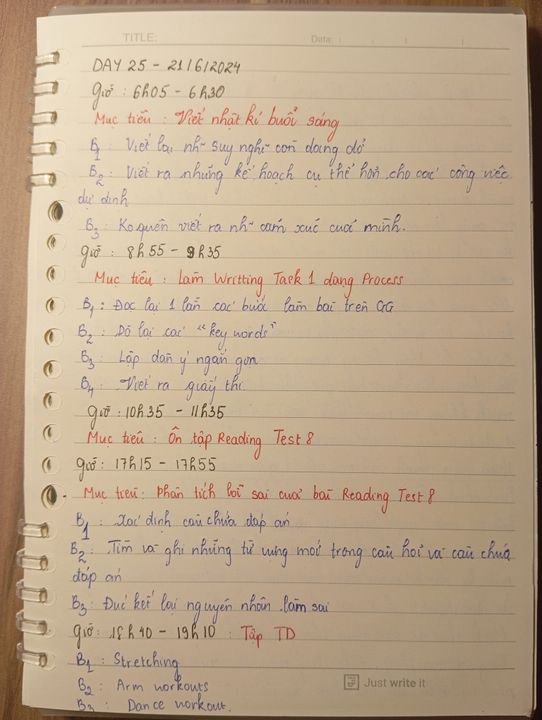 TITLE:
Date:
DAY 25 - 21/6/2024
giờ : 6h05 - 6h30
Mục tiêu : Viết nhật kí buổi sáng
B1 : Viết lại nh~ suy nghĩ còn dang dở
B2 : Viết ra những kế hoạch cụ thể hơn cho các công việc
dự định
B3 : Ko quên viết ra nh~ cảm xúc của mình.
giờ : 8h55 - 9h35
Mục tiêu : Làm Writting Task 1 dạng Process
B1 : Đọc lại 1 lần các bước làm bài trên GG
B2 : Dò lại các "key words"
B3 : Lập dàn ý ngắn gọn
B4 : Viết ra giấy thi.
giờ : 10h35 - 11h35
Mục tiêu : Ôn tập Reading Test 8
giờ : 17h15 - 17h55
Mục tiêu : Phân tích lỗi sai của bài Reading Test 8
B1 : Xác định câu chứa đáp án
B2 : Tìm và ghi những từ vựng mới trong câu hỏi và câu chứa
đáp án
B3 : Đúc kết lại nguyên nhân làm sai
giờ : 18h40 - 19h10 : Tập TD
B1 : Stretching
B2 : Arm workouts
B3 : Dance workout.
Just write it